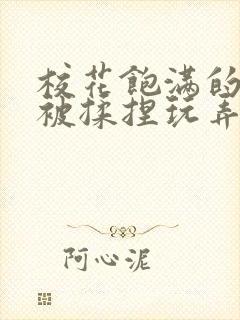 校花飽满的
被揉捏玩弄
阿心泥